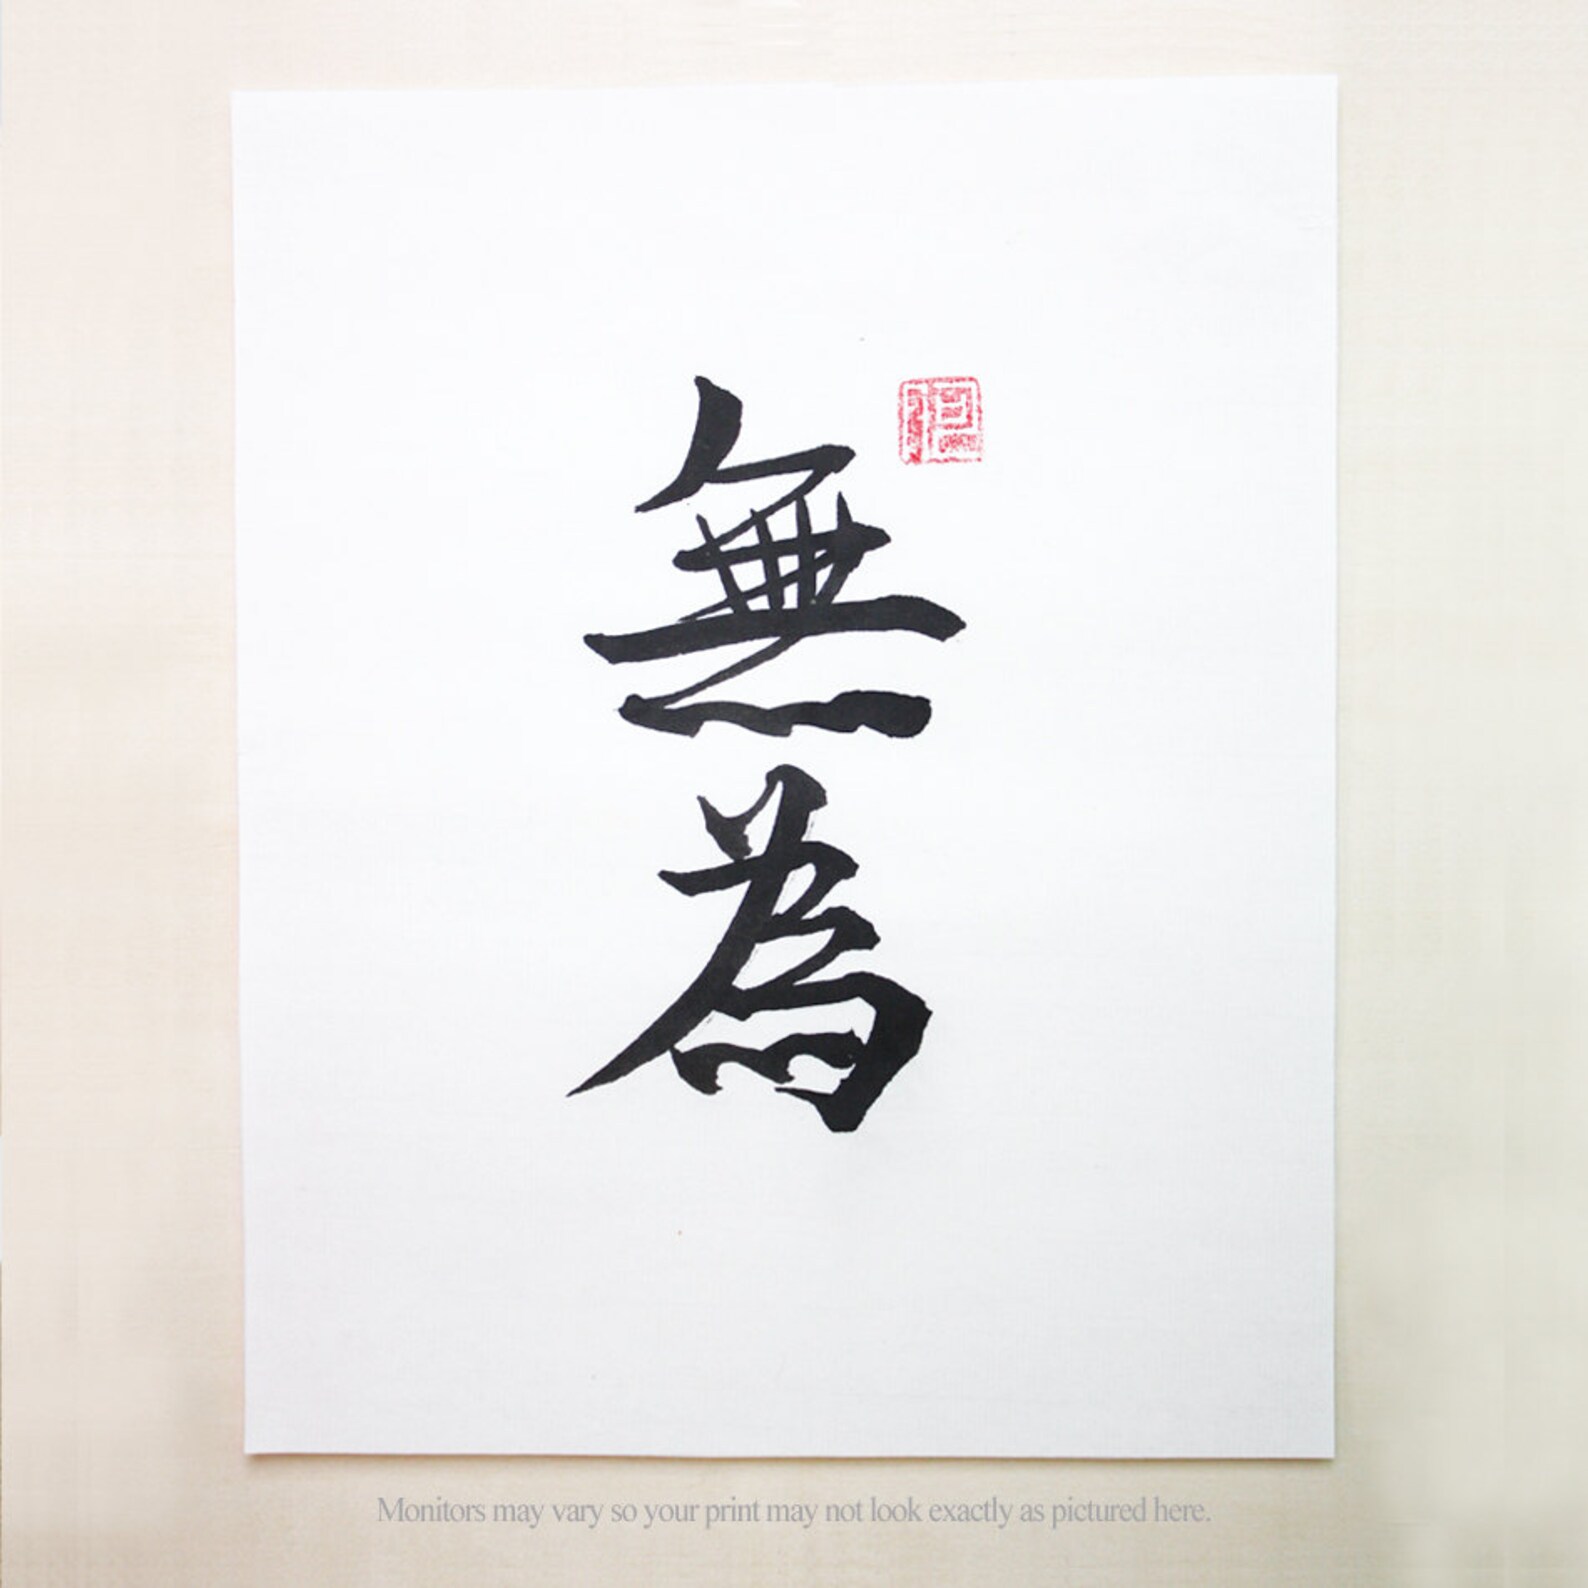 無
為
Monitors may vary so your print may not look exactly as pictured here.